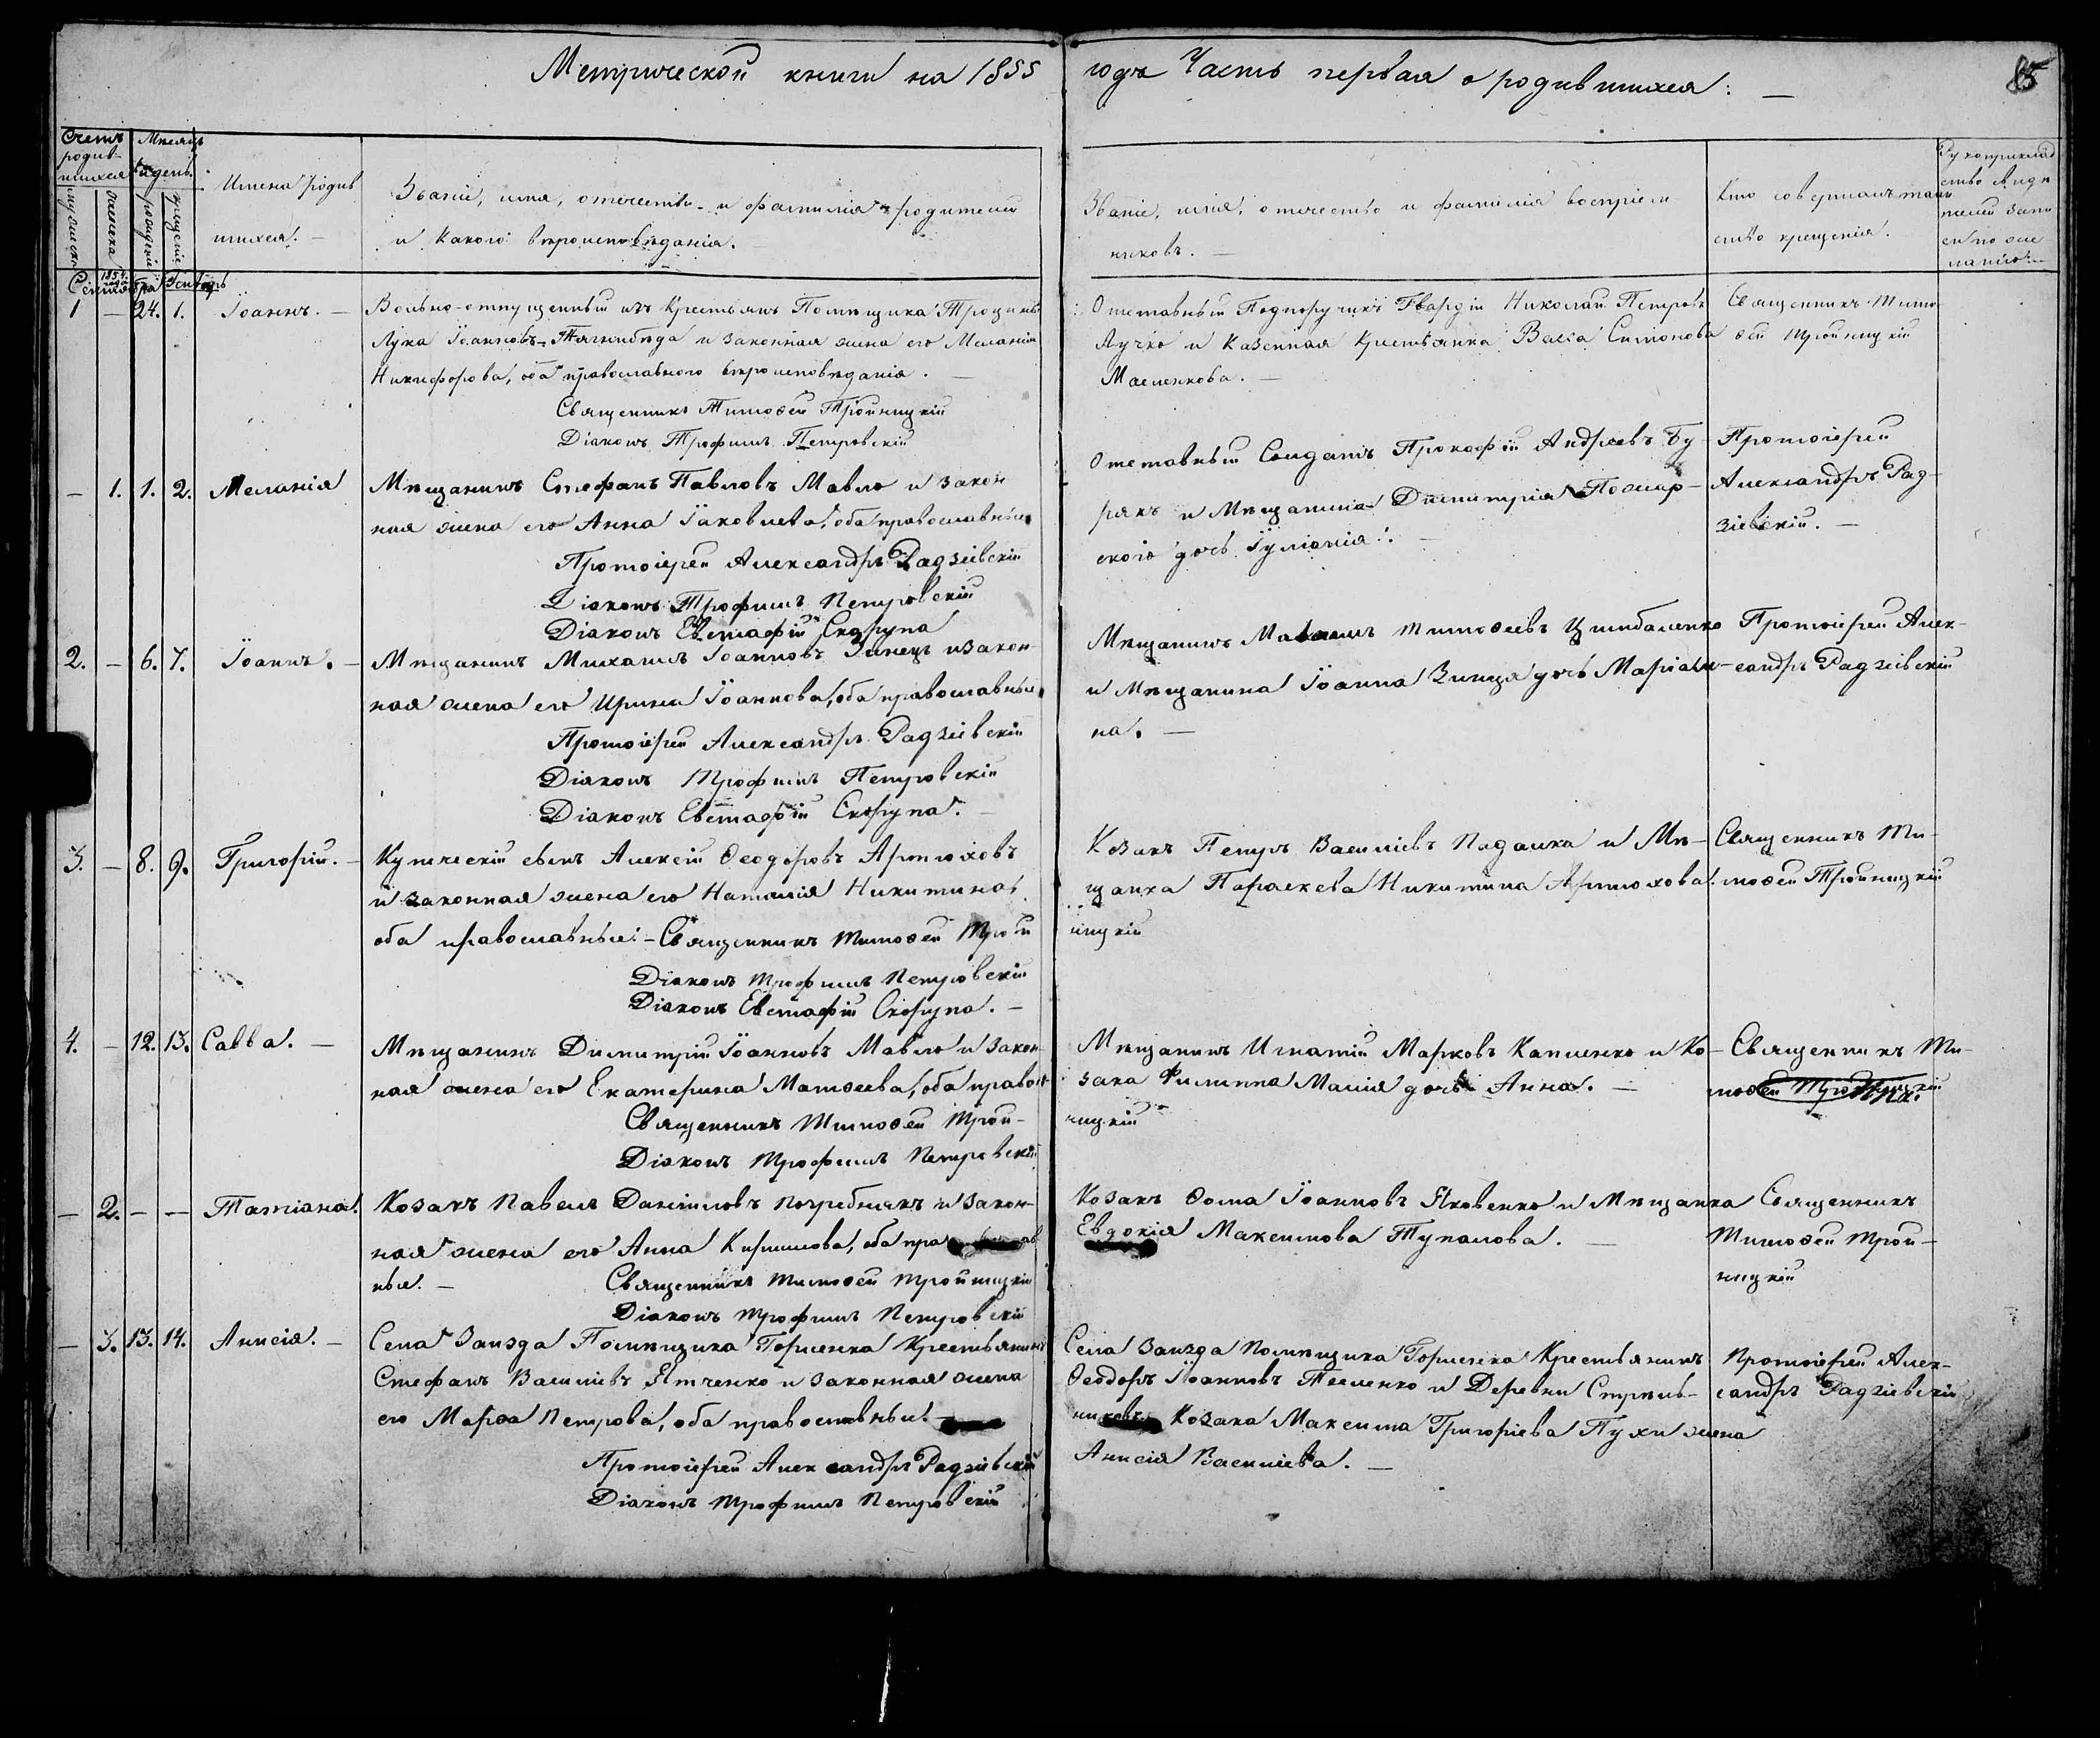 Метрической книги на 1855 годъ Часть первая о родившихся: —
85
Счетъ родив-
шихся
Мѣсяцъ
и день.
мужеска
женска
рожденіе
крещеніе
Имена родив
шихся. —
Званіе, имя, отечество и фамилія родителей
и какого вѣроисповѣданія. —
Званіе, имя, отечество и фамилія воспріем
никовъ. —
Кто совершалъ таин
ство крещенія.
Рукоприклад
ство свидѣ
телей запи
си по же
ланію. —
1854.
года
Сентября
1 — 24. 1. Іоаннъ. —
Вольно-отпущенный изъ Крестьянъ Помѣщика Трощинс
Лука Іоанновъ Тягнибѣда и законная жена его Меланія
Никифорова, оба православного вѣроисповѣданія. —
Священникъ Тимоѳей Тройницкій
Діаконъ Трофимъ Петровскій
Отставный Подпоручикъ Гвардіи Николай Петровъ
Лучко и Казенная Крестьянка Васса Симонова
Масленкова. —
Священникъ Тимо-
ѳей Тройницкій
— 1. 1. 2. Меланія
Мѣщанинъ Стефанъ Павловъ Мавло и закон
ная жена его Анна Іаковлева, оба православные
Протоіерей Александръ Радзіевскій
Діаконъ Трофимъ Петровскій
Діаконъ Евстафій Скорупа
Отставный Солдатъ Прокофій Андреевъ Бу-
рякъ и Мѣщанина Димитрія Пожар-
ского дочь Іуліанія. —
Протоіерей
Александръ Рад-
зіевскій. —
2. — 6. 7. Іоаннъ. —
Мѣщанинъ Михаилъ Іоанновъ Зинецъ и закон-
ная жена его Ирина Іоаннова, оба православные
Протоіерей Александръ Радзіевскій
Діаконъ Трофимъ Петровскій
Діаконъ Евстафій Скорупа. —
Мѣщанинъ Тимоѳеевъ Цимбаленко
и Мѣщанина Іоанна Зинця дочь Маріам-
на. —
Протоіерей Алек-
сандръ Радзіевскій
3. — 8. 9. Григорій. —
Купеческій сынъ Алексій Ѳеодоровъ Артюховъ
и законная жена его Наталія Никитина
оба православные: — Священникъ Тимоѳей Трой
ницкій
Діаконъ Трофимъ Петровскій
Діаконъ Евстафій Скорупа. —
Козакъ Петръ Василіевъ Падалка и Мѣ-
щанка Параскева Никитина Артюхова.
Священникъ Ти-
моѳей Тройницкій
4. — 12. 13. Савва. —
Мѣщанинъ Димитрій Іоанновъ Мавло и закон-
ная жена его Екатерина Матѳеева, оба правосл
Священникъ Тимоѳей Трой-
ницкій
Діаконъ Трофимъ Петровскій
Мѣщанинъ Игнатій Марковъ Капленко и Ко-
зака Филиппа Малія дочь Анна. —
Священникъ Ти-
моѳей Тройницкій
— 2. — — Татіана.
Козакъ Павелъ Даніиловъ Погребнякъ и закон-
ная жена его Анна Кириллова, оба пра
ныя. —
Священникъ Тимоѳей Тройницкій
Діаконъ Трофимъ Петровскій
Козакъ Ѳома Іоанновъ Яковенко и Мѣщанка
Евдокія Максимова Тупалова. —
Священникъ
Тимоѳей Трой-
ницкій
— 3. 13. 14. Анисія. —
Села Заизда Помѣщика Горленка Крестьянинъ
Стефанъ Василіевъ Ятченко и законная жена
его Марѳа Петрова, оба православные. —
Протоіерей Александръ Радзіевскій
Діаконъ Трофимъ Петровскій
Села Заизда Помѣщика Горленка Крестьянинъ
Ѳеодоръ Іоанновъ Тесленко и Деревни Стрѣль-
никовки Козака Максима Григоріева Пухи жена
Анисія Василіева. —
Протоіерей Алек-
сандръ Радзіевскій